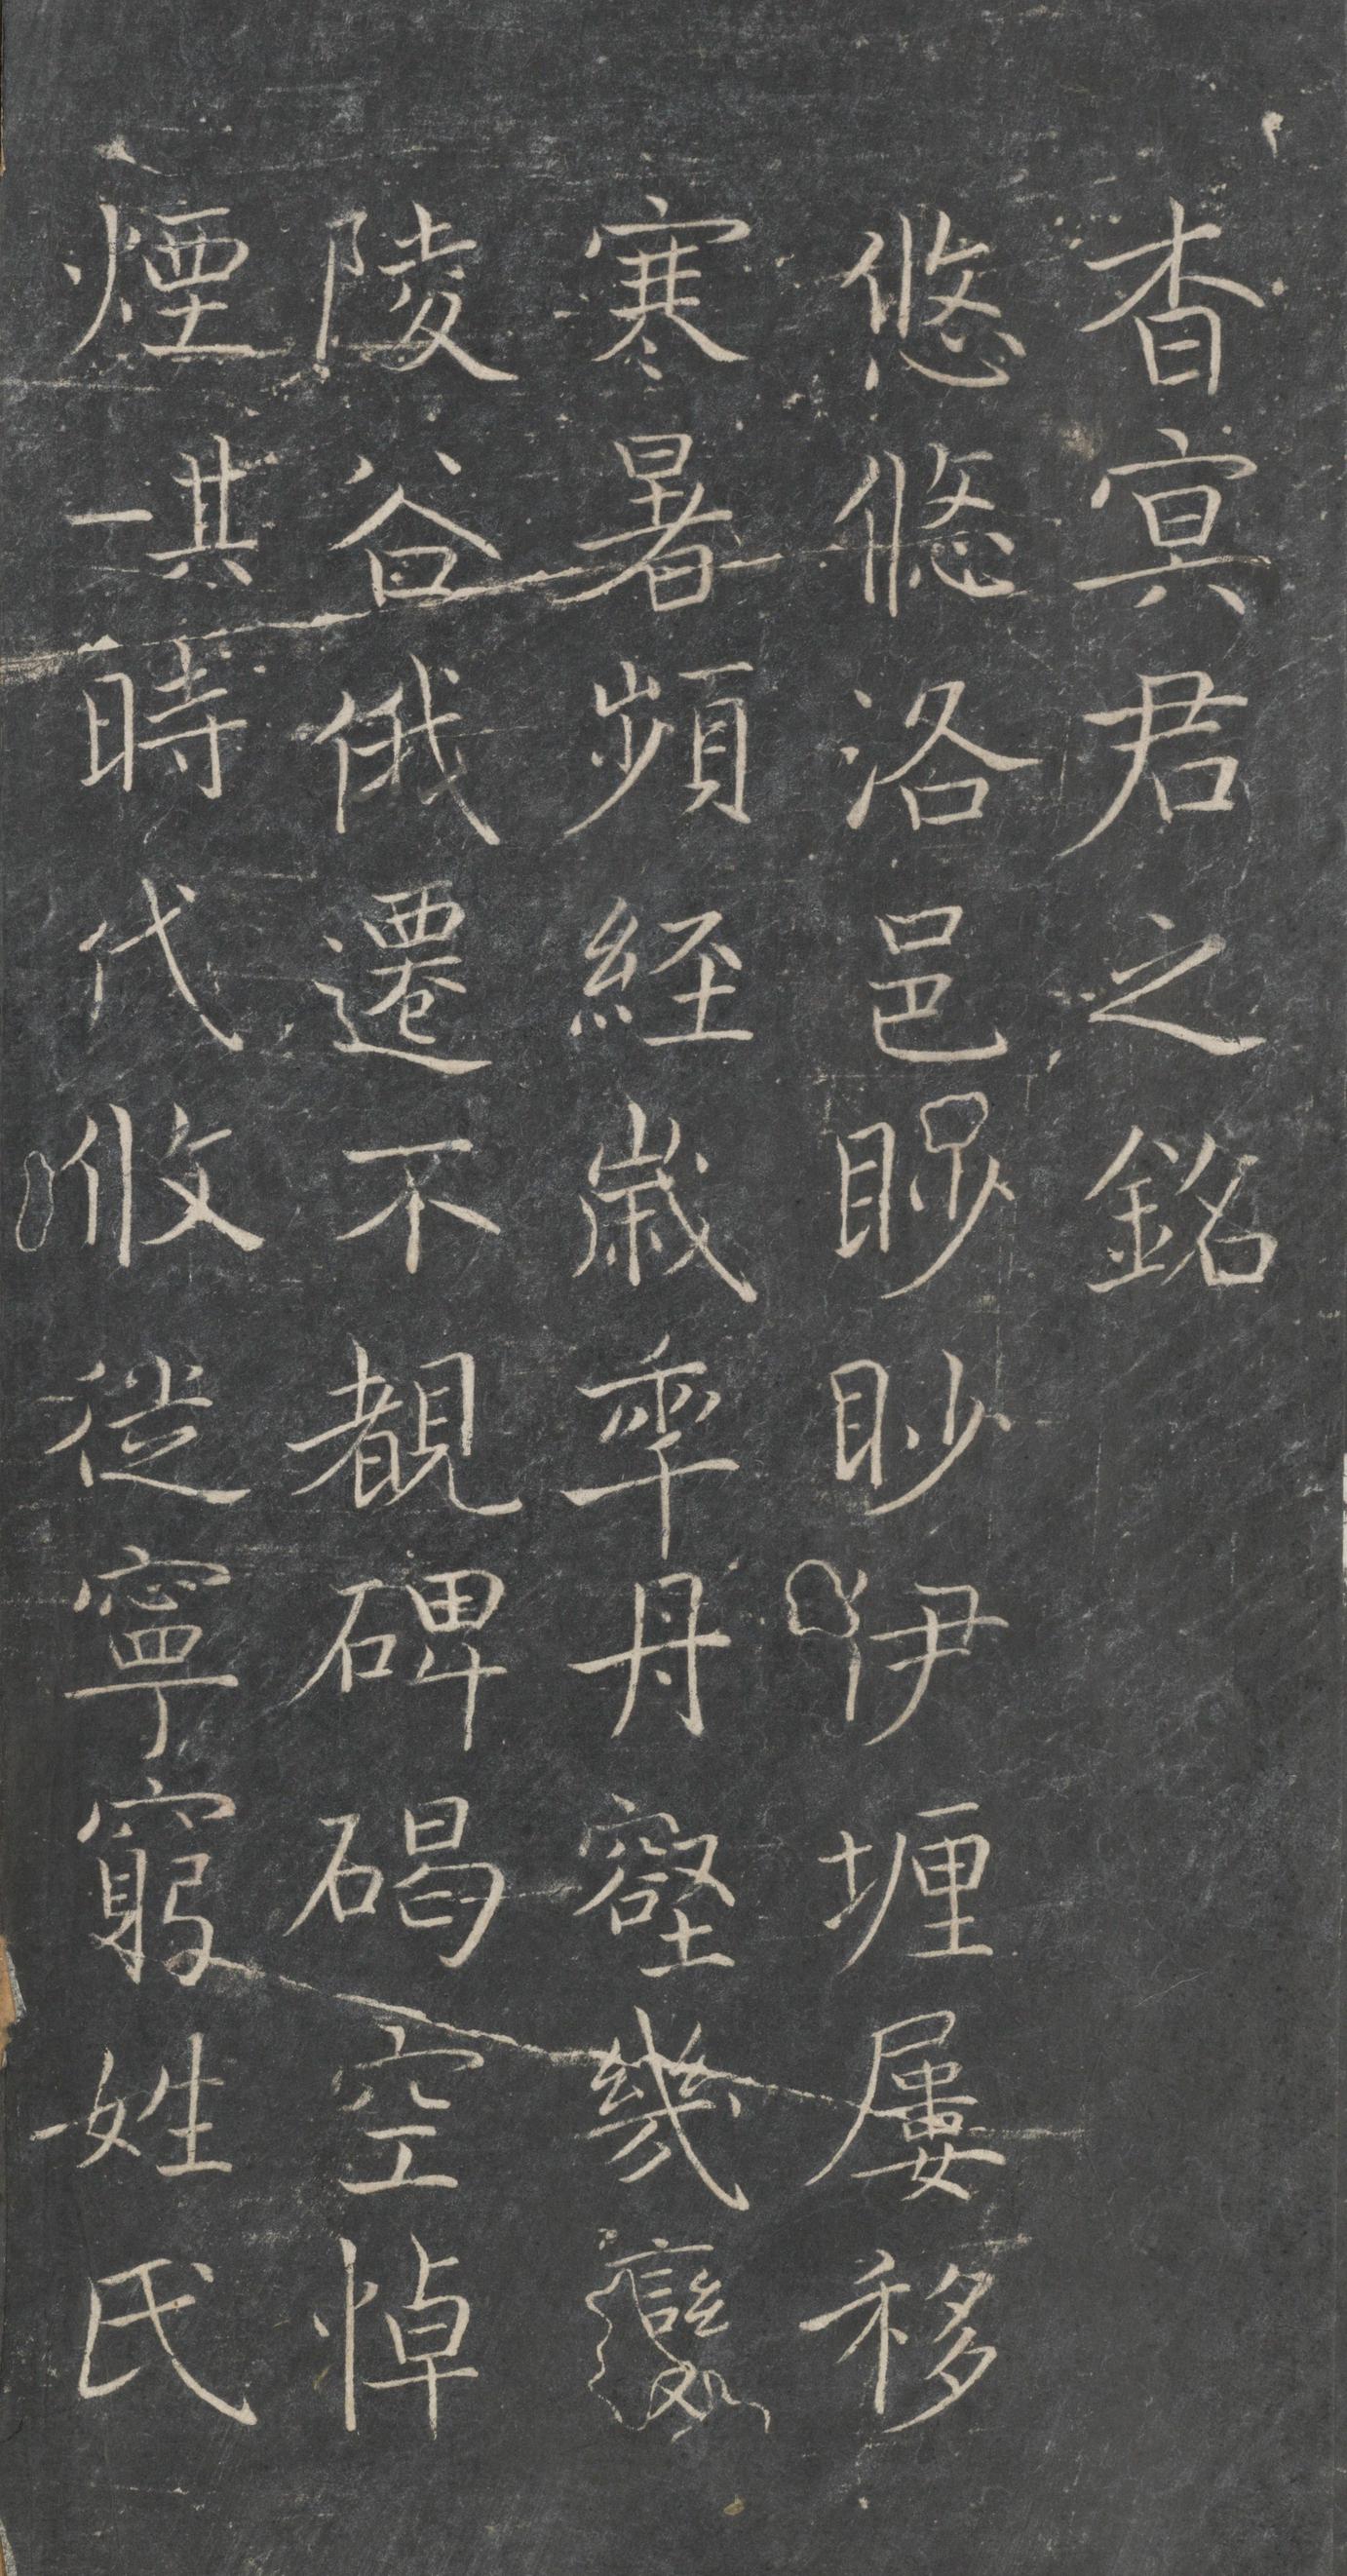 杳冥君之銘
悠悠洛邑眇眇伊壥屢移
寒暑頻經歲年丹壑幾變
陵谷俄遷不覩碑碣空悼
煙其一時代攸徙寧窮姓氏